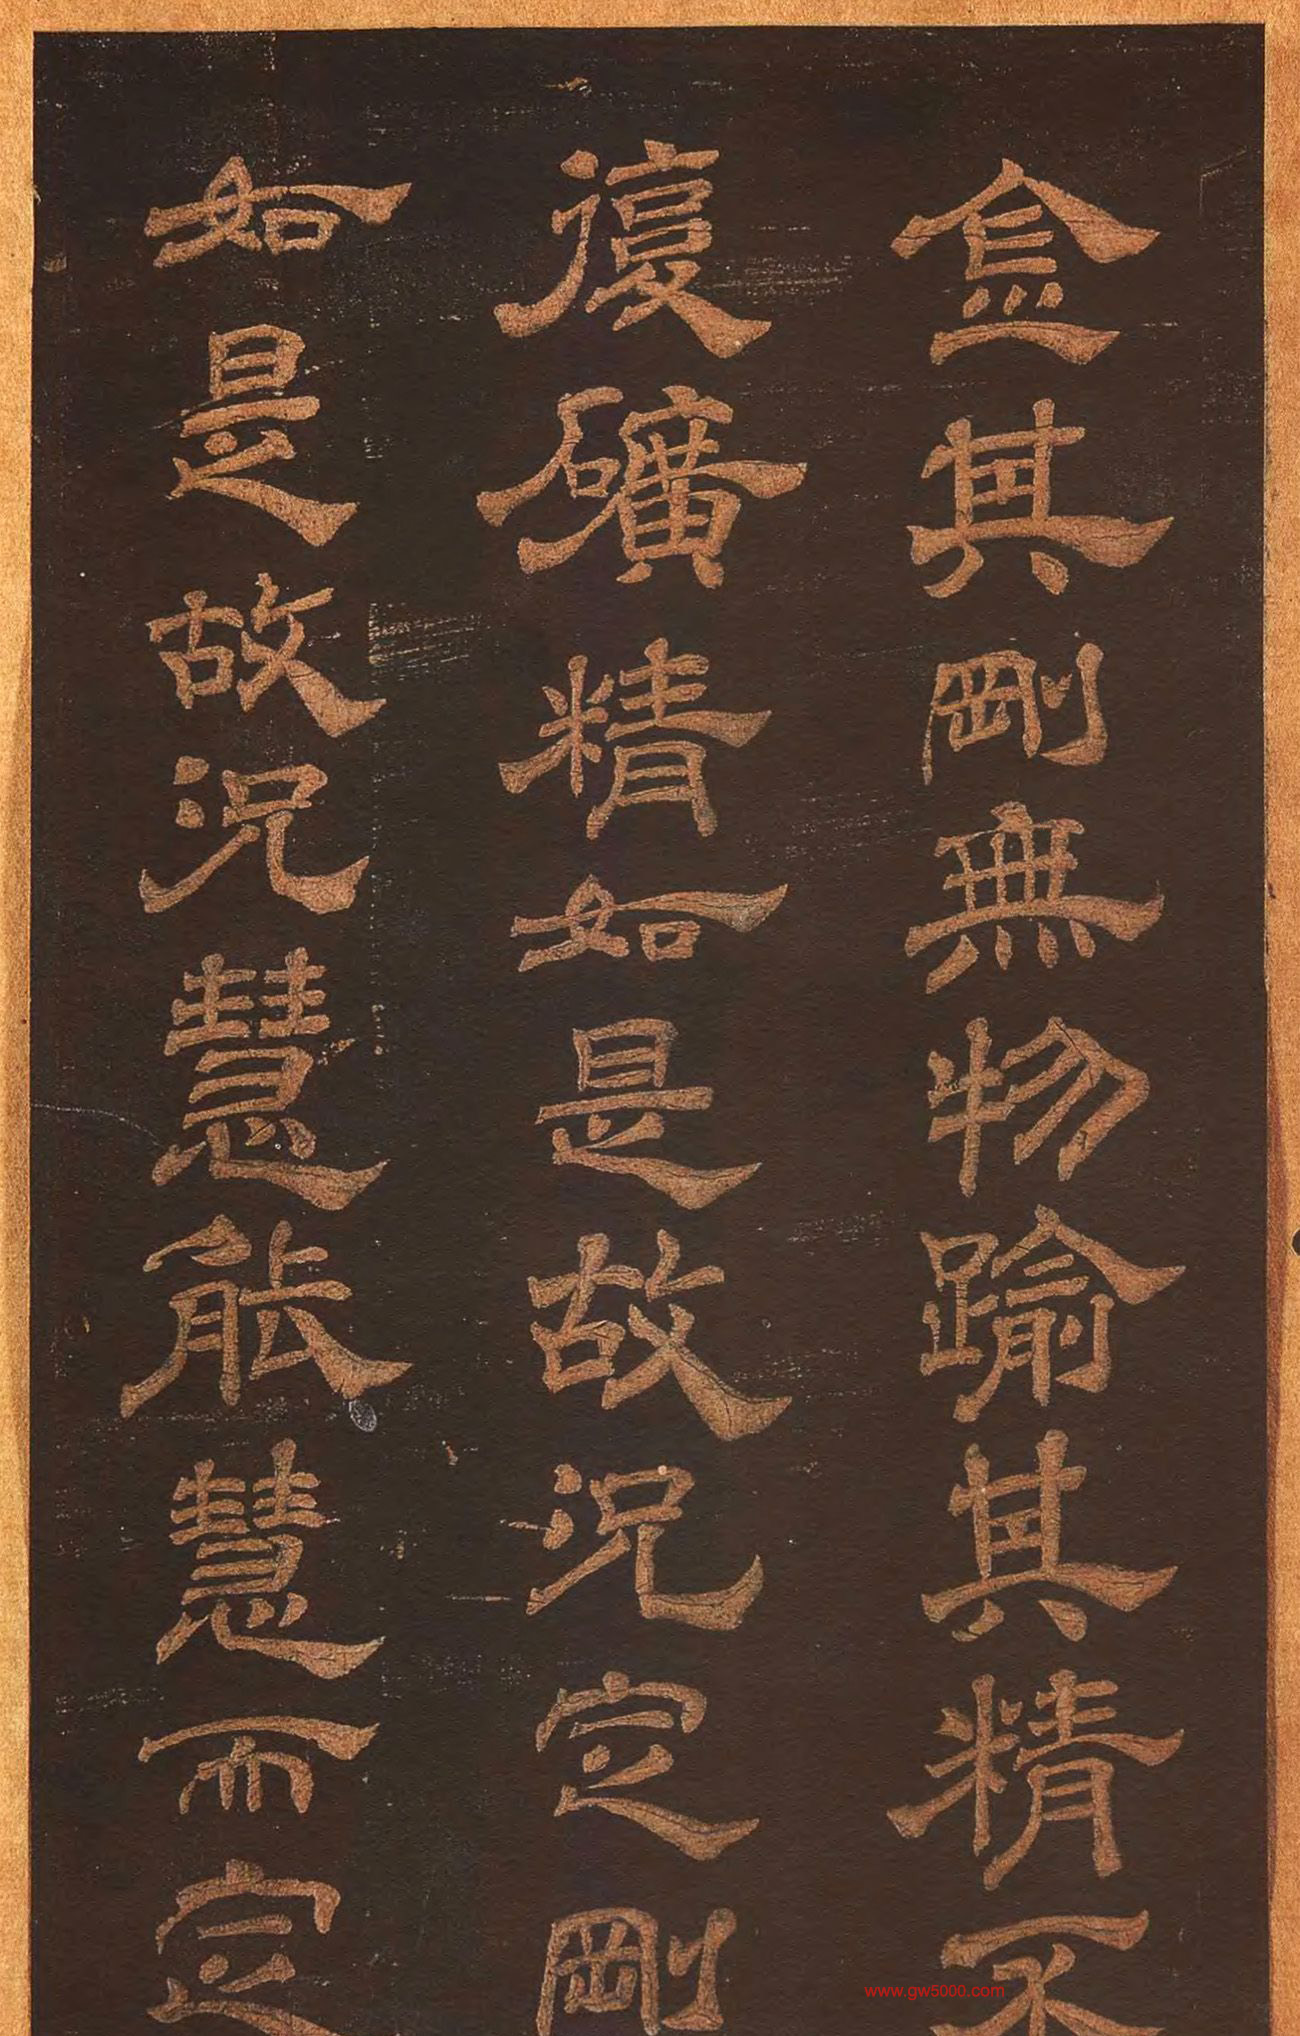 金其剛無物踰其精不
復礦精如是故況定剛
如是故況慧能慧而定
www.gw5000.com